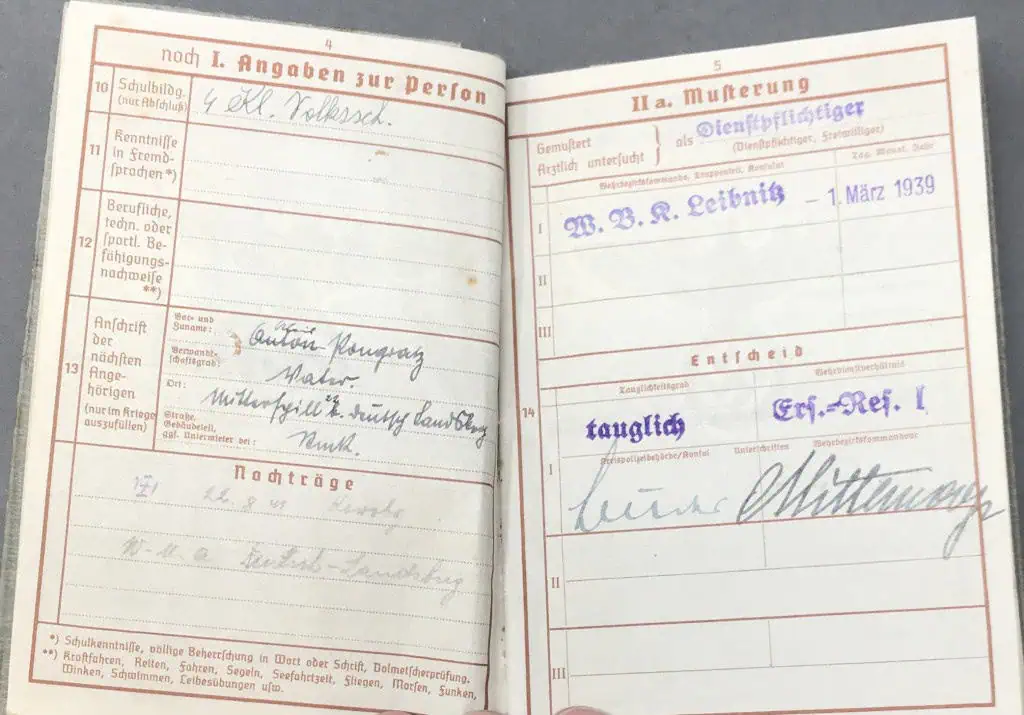 4
noch I. Angaben zur Person
10 Schulbildg. (nur Abschluß)
4 Kl. Volkssch.
11 Kenntnisse in Fremd-
sprachen *)
12 Berufliche,
techn. oder
sportl. Be-
fähigungs-
nachweise
**)
13 Anschrift
der
nächsten
Ange-
hörigen
(nur im Kriege
auszufüllen)
Vor- und
Zuname:
Anton Pongratz
Verwandt-
schaftsgrad:
Vater.
Ort:
Deutsch Landsberg
Straße,
Gebäudeteil,
ggf. Untermieter bei:
Nachträge
22. 8
Deutsch-Landsberg
*) Schulkenntnisse, völlige Beherrschung in Wort oder Schrift, Dolmetscherprüfung.
**) Kraftfahren, Reiten, Fahren, Segeln, Seefahrtzeit, Fliegen, Morsen, Funken,
Winken, Schwimmen, Leibesübungen usw.
5
II a. Musterung
Gemustert
Ärztlich untersucht
als Dienstpflichtiger
(Dienstpflichtiger, Freiwilliger)
14
Wehrbezirkskommando, Truppenteil, Konsulat
Tag, Monat, Jahr
I W. B. K. Leibnitz – 1. März 1939
II
III
Entscheid
Tauglichkeitsgrad
Wehrdienstverhältnis
tauglich Ers.=Res. I
Kreispolizeibehörde/Konsul Unterschriften Wehrbezirkskommandeur
I
II
III